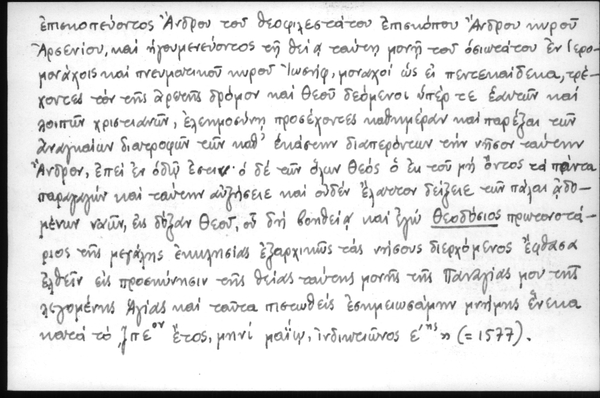 ἐπισκοπεύοντος Ἄνδρου τοῦ θεοφιλεστάτου ἐπισκόπου Ἄνδρου κυροῦ
Ἀρσενίου, καὶ ἡγουμενεύοντος τῇ θείᾳ ταύτῃ μονῇ τοῦ ὁσιωτάτου ἐν ἱερο-
μονάχοις καὶ πνευματικοῦ κυροῦ Ἰωσήφ, μοναχοὶ ὡς εἰ πεντεκαίδεκα, τρέ-
χοντες τὸν τῆς ἀρετῆς δρόμον καὶ θεοῦ δεόμενοι ὑπέρ τε ἑαυτῶν καὶ
λοιπῶν χριστιανῶν, ἐλεημοσύνῃ προσέχοντες καθημέραν καὶ παρέξαι τῶν
ἀναγκαίων διατροφῶν τῶν καθ' ἑκάστην διαπερόντων τὴν νῆσον ταύτην
Ἄνδρον, ἐπεὶ ἐν ὁδῷ ἐστιν· ὁ δὲ τῶν ὅλων θεὸς ὁ ἐκ τοῦ μὴ ὄντος τὰ πάντα
παραγαγὼν καὶ ταύτην αὐξήσειε καὶ οὐδὲν ἔλαττον δείξειε τῶν πάλαι ᾀδο-
μένων ναῶν, εἰς δόξαν θεοῦ, οὗ δὴ βοηθείᾳ καὶ ἐγὼ Θεοδόσιος πρωτονοτά-
ριος τῆς μεγάλης ἐκκλησίας ἐξαρχικῶς τὰς νήσους διερχόμενος ἔφθασα
ἐλθεῖν εἰς προσκύνησιν τῆς θείας ταύτης μονῆς τῆς Παναγίας μου τῆς
λεγομένης Ἁγίας καὶ ταῦτα πιστωθεὶς ἐσημειωσάμην μνήμης ἕνεκα
κατὰ τὸ ͵ζπεον ἔτος, μηνὶ μαΐῳ, ἰνδικτιῶνος ε´ης» (= 1577).